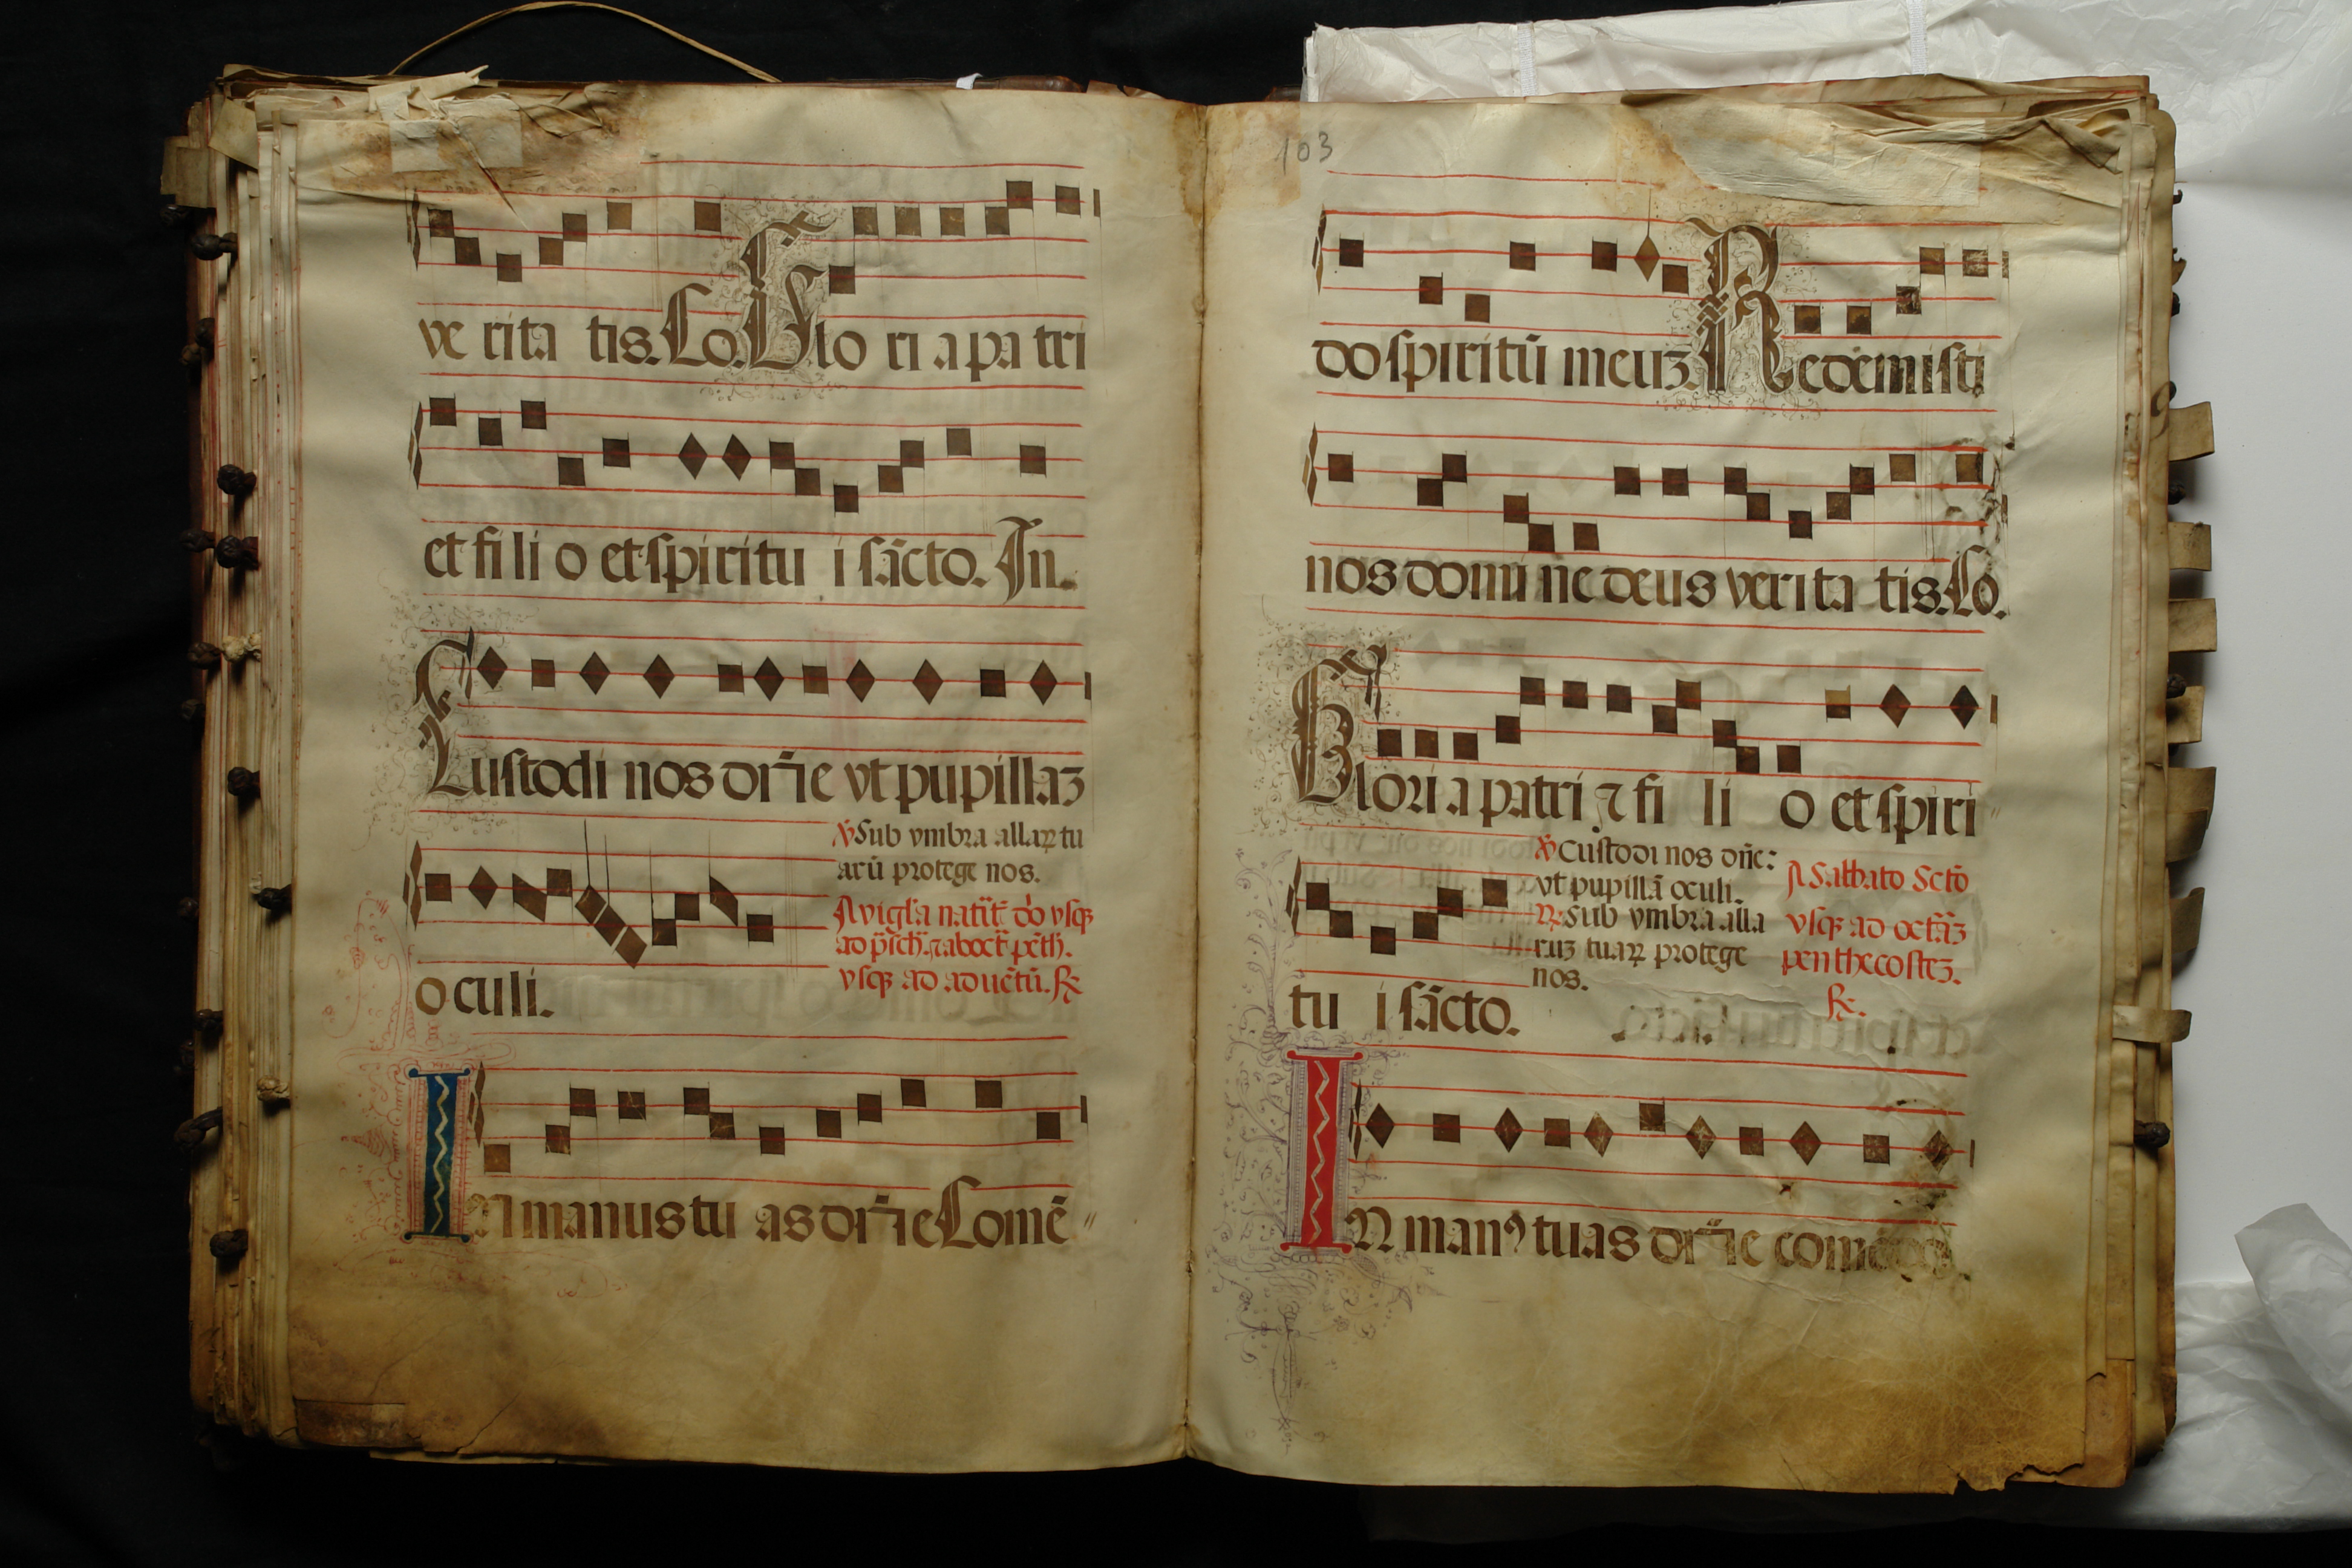 ve rita tis. Co. Glo ri a pa tri
et fi li o et spiritu i sãcto. In.
Custodi nos dñe vt pupillaz
ỽ Sub vmbra allaꝝ tu
arũ protege nos.
oculi.
vsqꝫ ad aduẽtũ. ℟
In manus tu as dñe Comẽ
103
do spiritũ meuz. Redemisti
nos domi ne deus verita tis. Co.
Gloria patri ⁊ fi li o et spiri
ỽ Custodi nos dñe:
vt pupillã oculi.
℟ Sub vmbra alla
ruz tuaꝝ protege
nos.
A Sabbato Sctõ
vsqꝫ ad octãz
penthecostez.
℟
tu i sãcto.
In manꝰ tuas dñe comẽdo